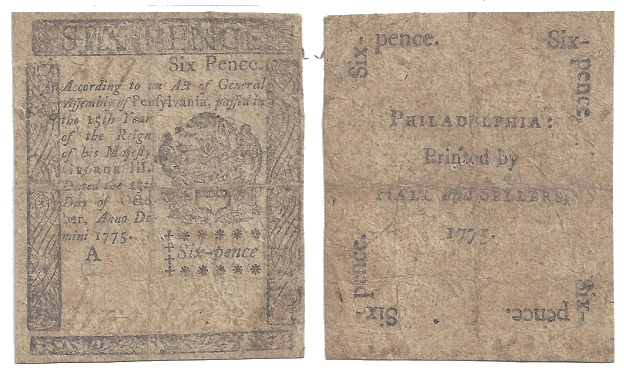 SIX PENCE
Six Pence.
According to an Act of General
Assembly of Pensylvania, passed in
the 15th Year
of the Reign
of his Majesty
GEORGE III.
Dated the 25th
Day of Octo-
ber, Anno Do-
mini 1775.
A
Six-pence
Six-pence.
Six-pence.
PHILADELPHIA:
Printed by
HALL and SELLERS,
1775.
Six-pence.
Six-pence.